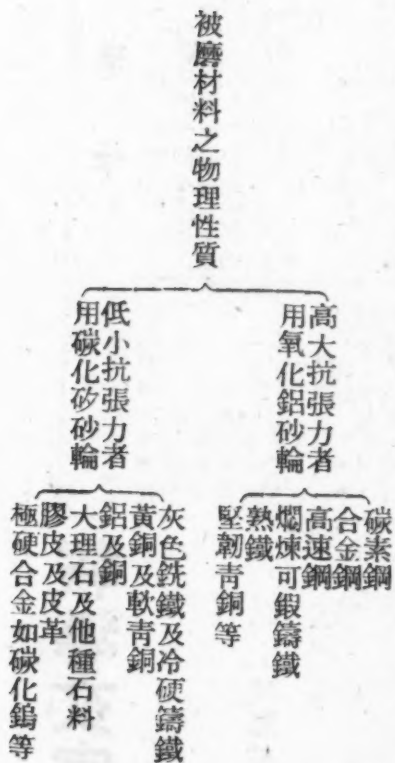 被磨材料之物理性質
高大抗張力者
用氧化鋁砂輪
碳素鋼
合金鋼
高速鋼
燜煉可鍛鑄鐵
熟鐵
堅韌青銅等
低小抗張力者
用碳化矽砂輪
灰色銑鐵及冷硬鑄鐵
黃銅及軟青銅
鋁及銅
大理石及他種石料
膠皮及皮革
極硬合金如碳化鎢等